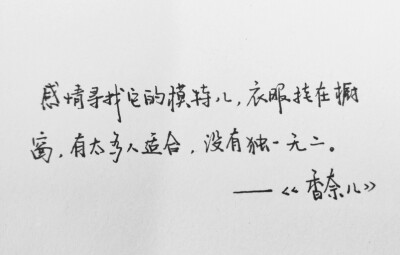 感情寻找它的模特儿,衣服挂在橱
窗,有太多人适合,没有独一无二。
——《香奈儿》